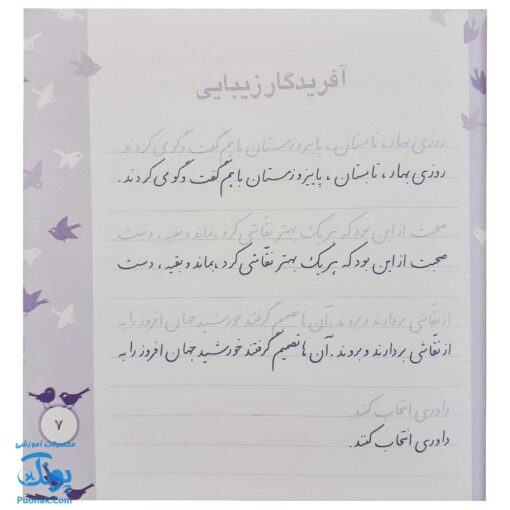 آفریدگار زیبایی
روزی بهار، تابستان، پاییز و زمستان با هم گفت و گوی کردند.
روزی بهار، تابستان، پاییز و زمستان با هم گفت و گوی کردند.
صحبت از این بود که هر یک بهتر نقّاشی کرد، بماند و بقیه، دست
صحبت از این بود که هر یک بهتر نقّاشی کرد، بماند و بقیه، دست
از نقّاشی بردارند و بروند. آن ها تصمیم گرفتند خورشید جهان افروز را به
از نقّاشی بردارند و بروند. آن ها تصمیم گرفتند خورشید جهان افروز را به
داوری انتخاب کنند.
داوری انتخاب کنند.
۷
محصولات آموزشی
پونک
Puonak.com